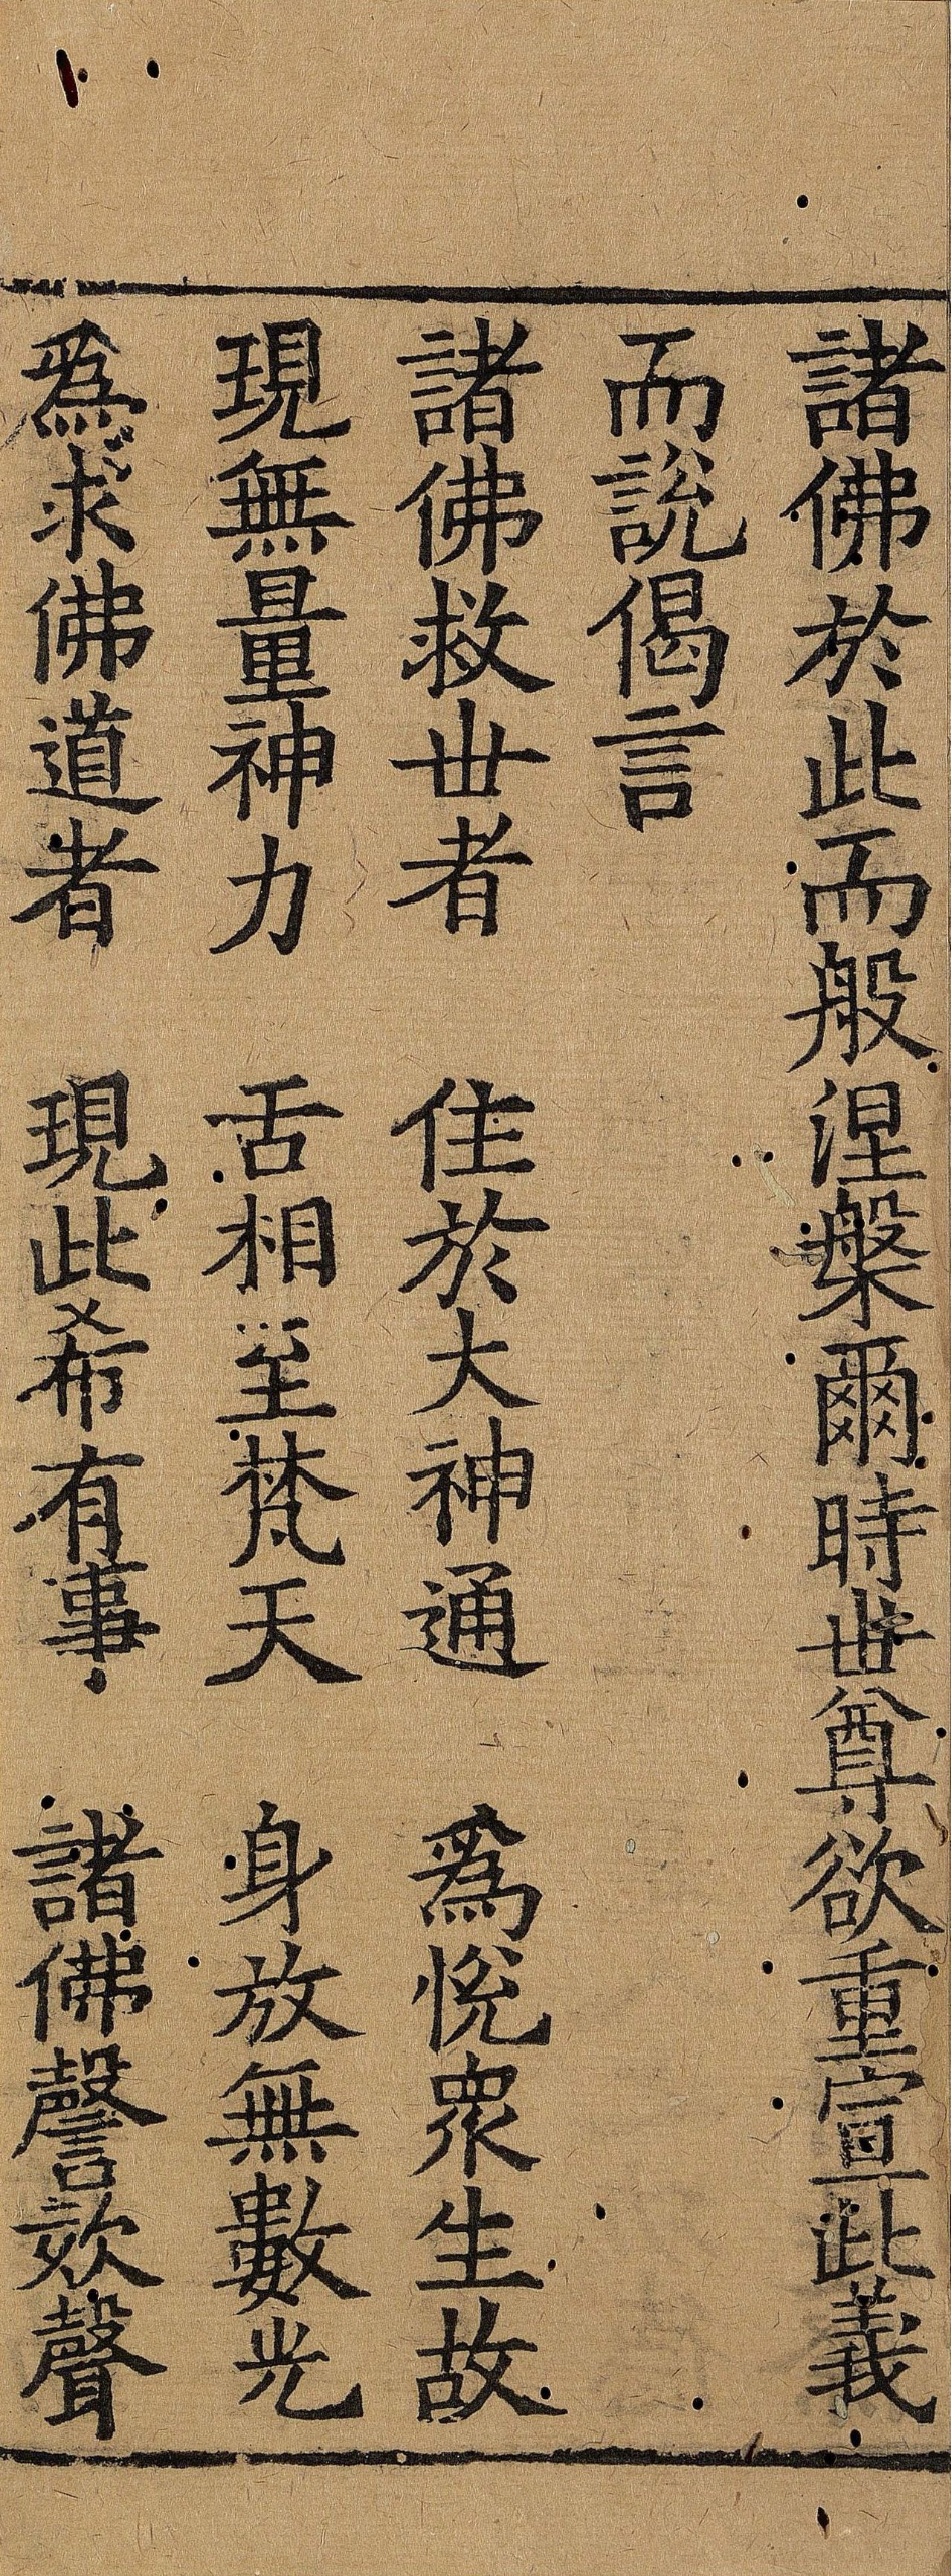 諸佛於此而般涅槃爾時世尊欲重宣此義
而說偈言
諸佛救世者　住於大神通　爲悅衆生故
現無量神力　舌相至梵天　身放無數光
爲求佛道者　現此希有事　諸佛謦欬聲